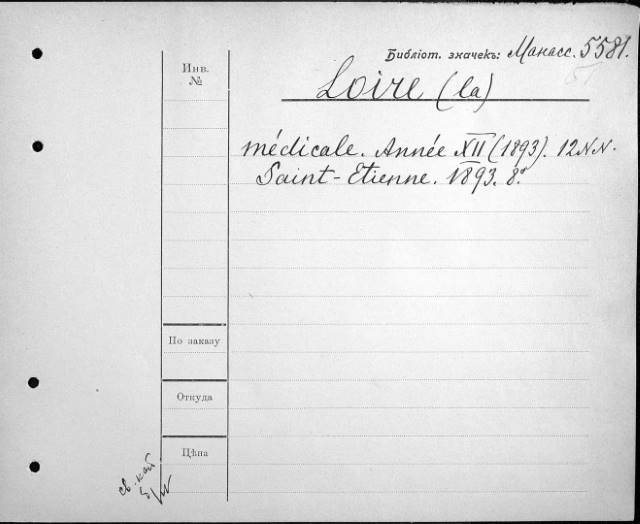 Библіот. значекъ: Манасс. 5581.
Инв.
№
Loire (la)
médicale. Année XII (1893). 12 NN.
Saint-Etienne. 1893. 8°.
По заказу
Откуда
Цѣна